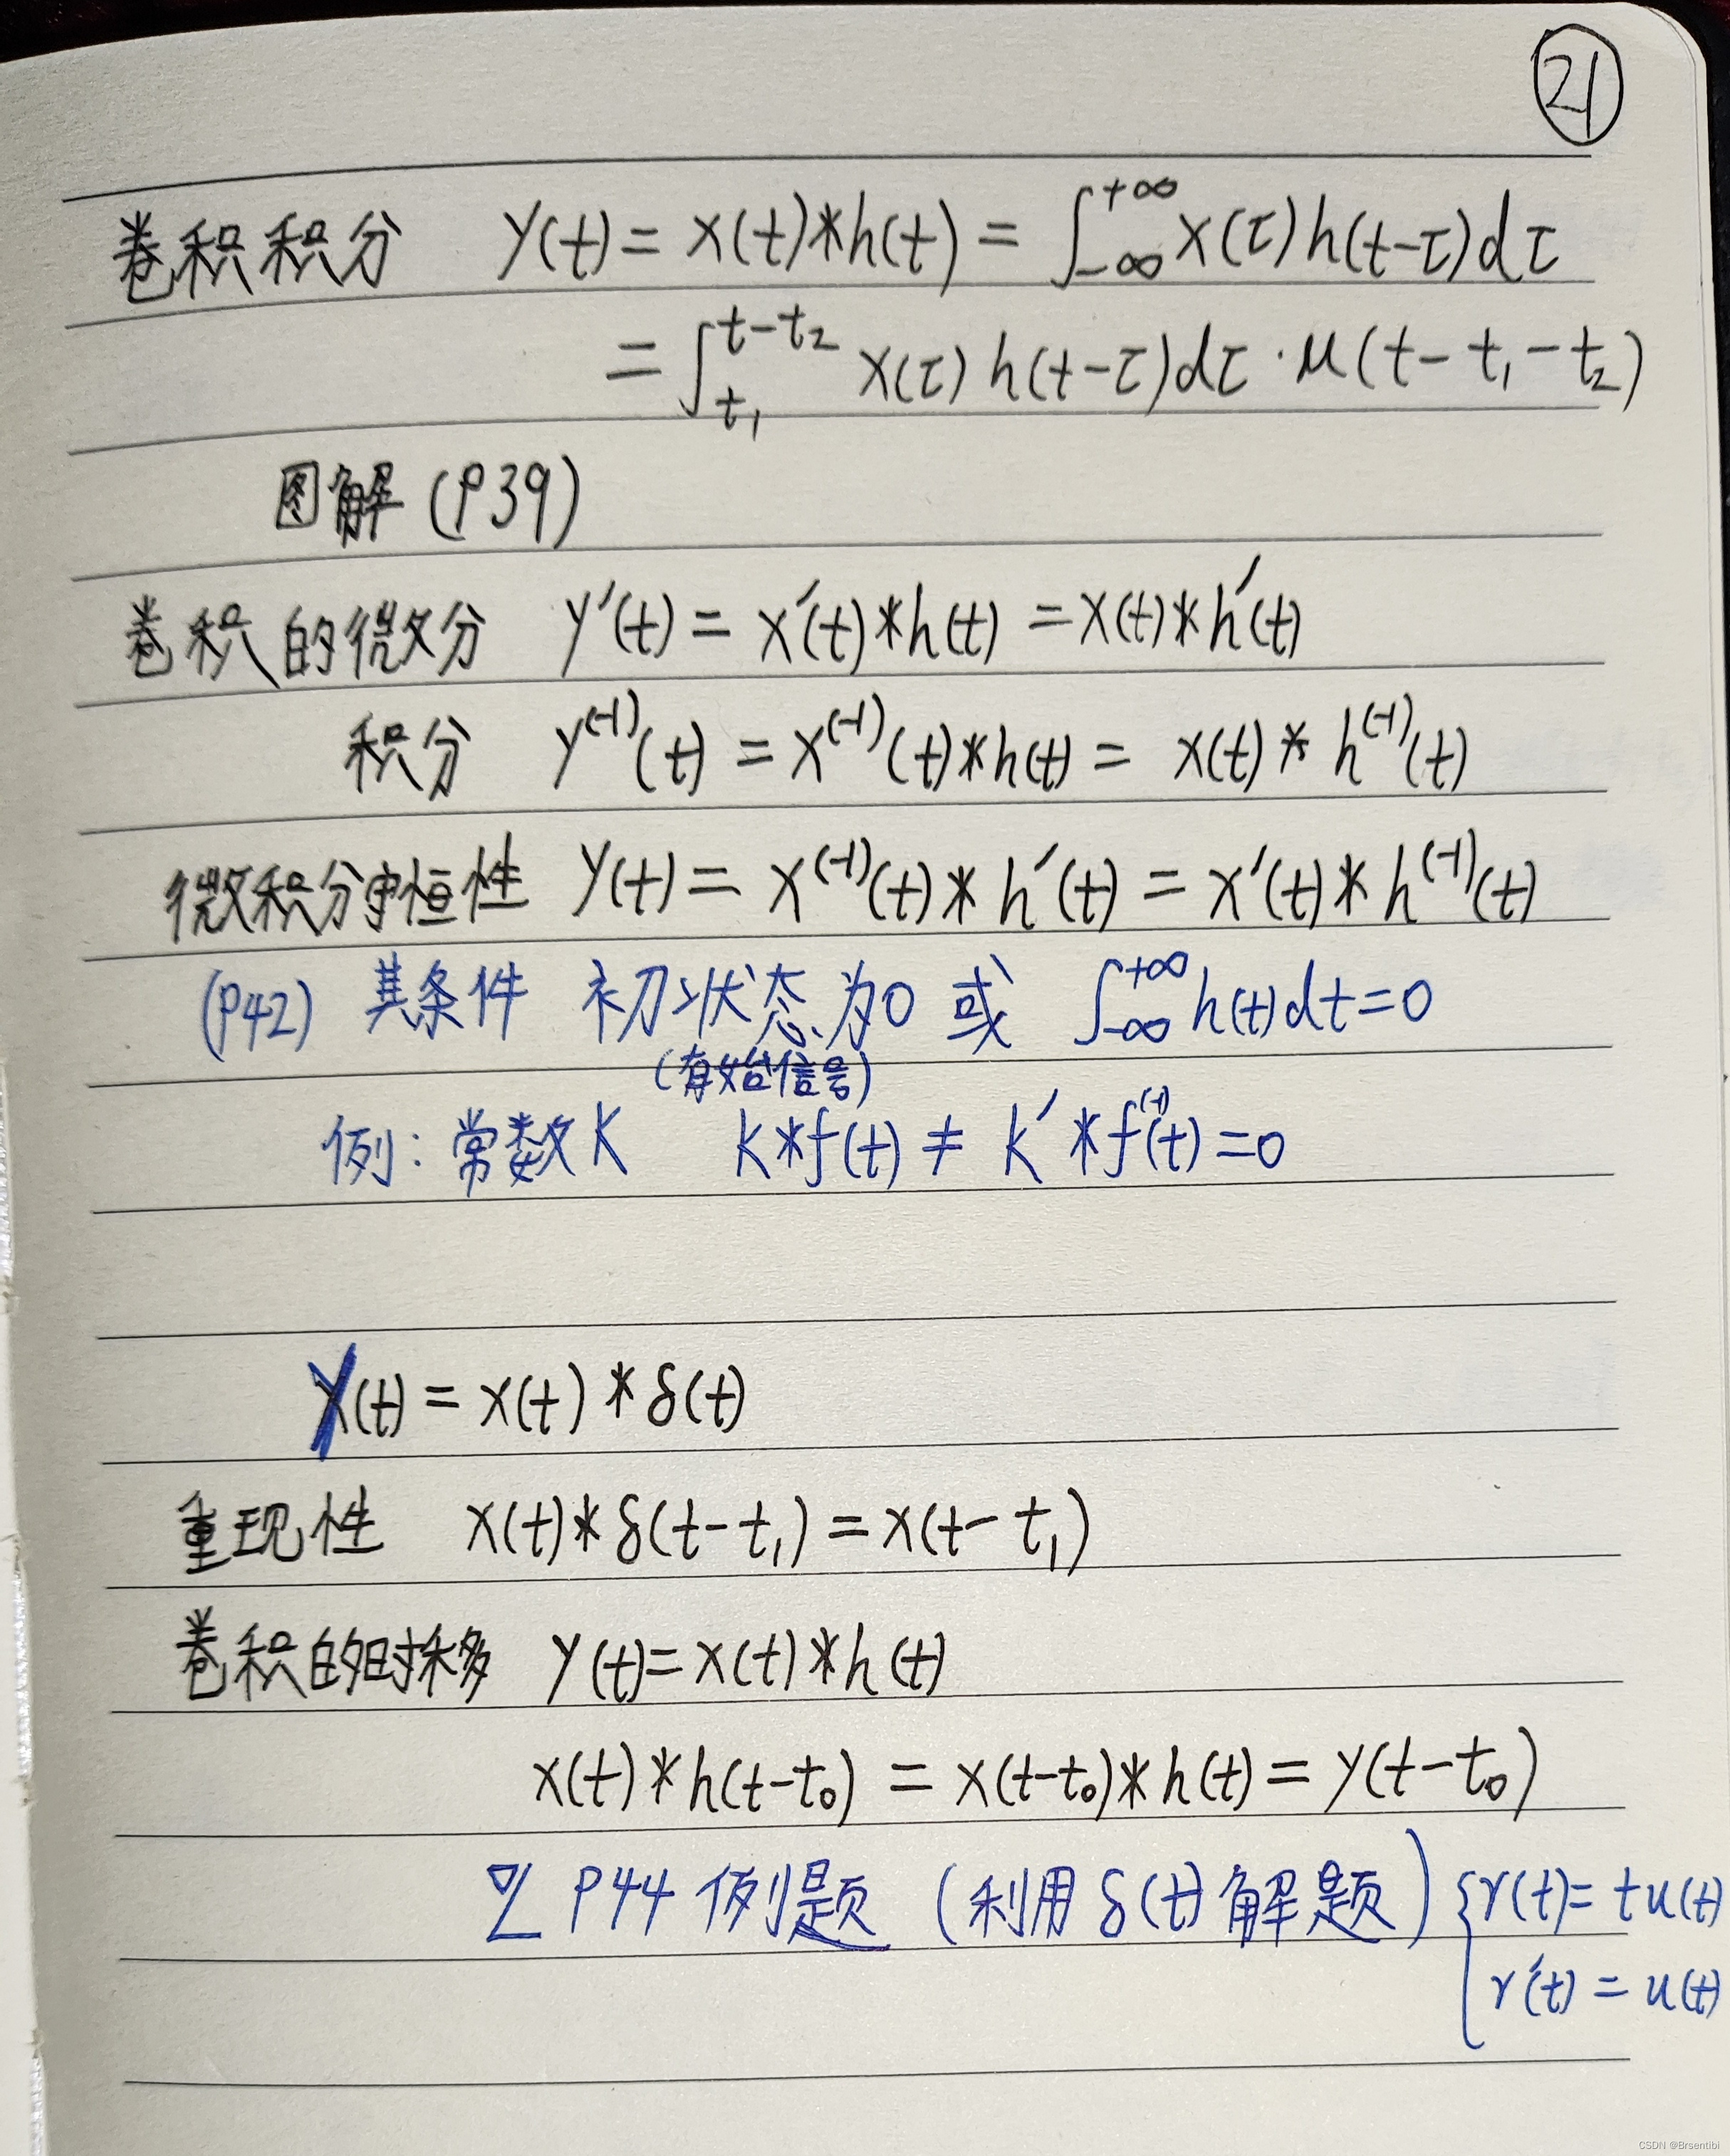 21
卷积积分 y(t)=x(t)*h(t)=∫_{-∞}^{+∞}x(τ)h(t-τ)dτ
=∫_{t₁}^{t-t₂}x(τ)h(t-τ)dτ·u(t-t₁-t₂)
图解(P39)
卷积的微分 y′(t)=x′(t)*h(t)=x(t)*h′(t)
积分 y^{(-1)}(t)=x^{(-1)}(t)*h(t)=x(t)*h^{(-1)}(t)
微积分守恒性 y(t)=x^{(-1)}(t)*h′(t)=x′(t)*h^{(-1)}(t)
(P42) 其条件 初状态为0 或 ∫_{-∞}^{+∞}h(t)dt=0
(有始信号)
例:常数K K*f(t)≠K′*f^{(-1)}(t)=0
y(t)=x(t)*δ(t)
重现性 x(t)*δ(t-t₁)=x(t-t₁)
卷积的时移 y(t)=x(t)*h(t)
x(t)*h(t-t₀)=x(t-t₀)*h(t)=y(t-t₀)
P44例题 (利用δ(t)解题) {r(t)=tu(t)
r′(t)=u(t)
CSDN @Brsentibi